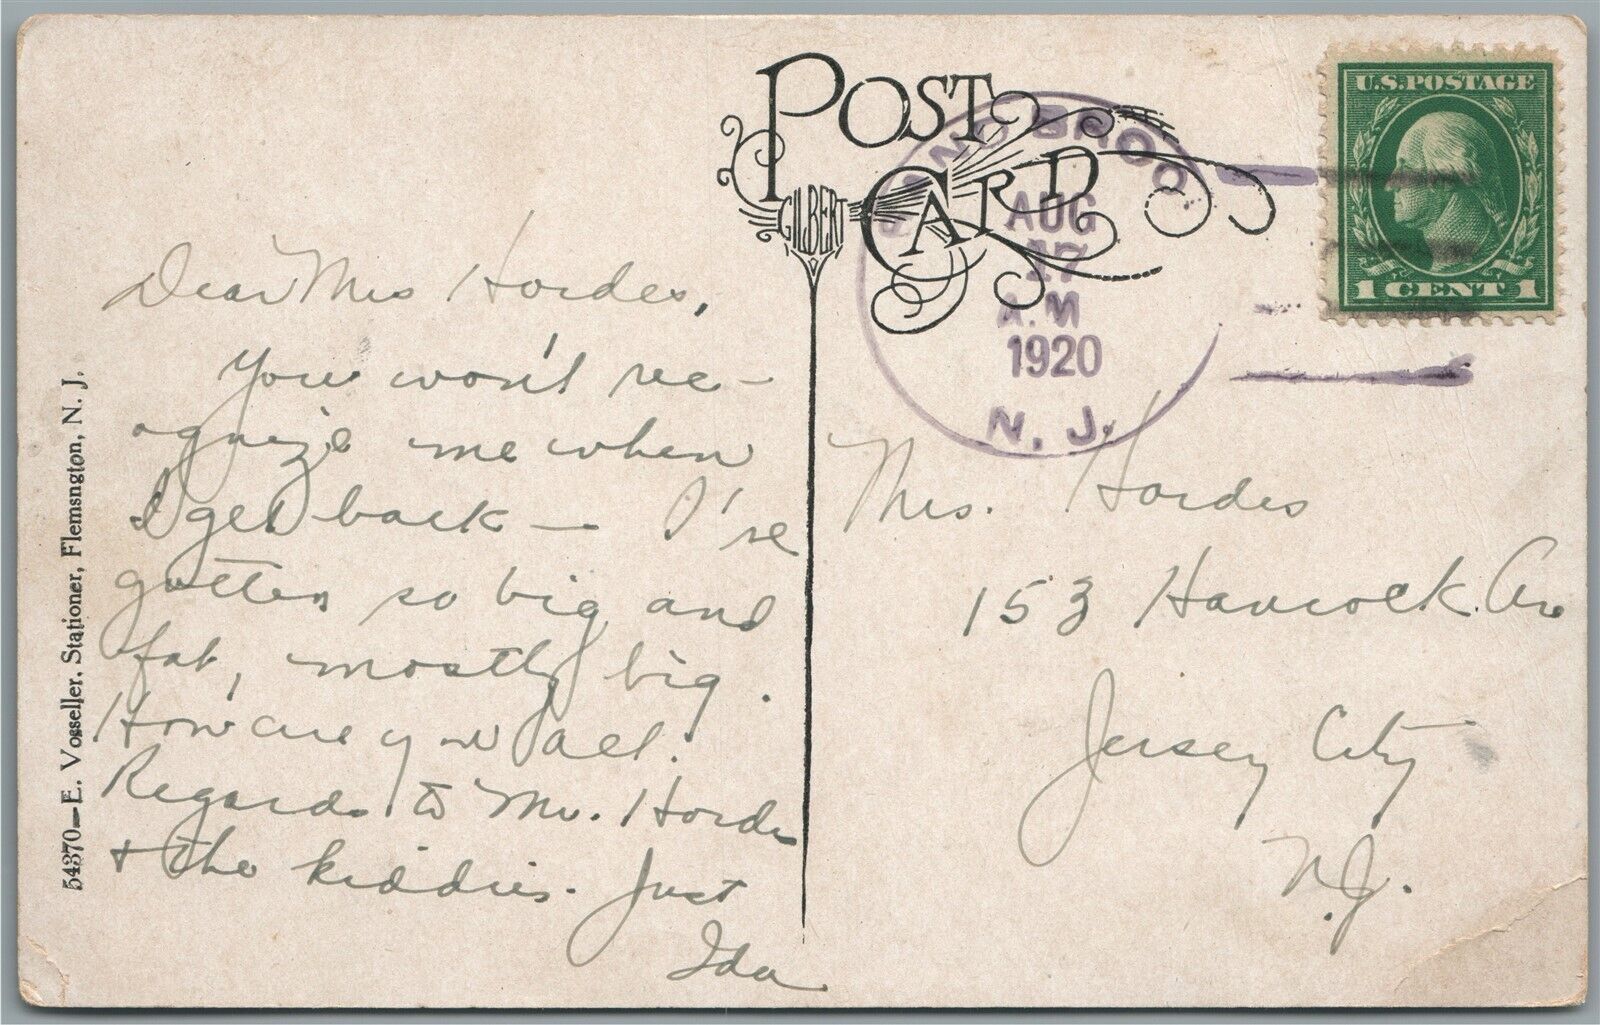 POST
CARD
GILBERT
U.S.POSTAGE
1 CENT 1
AUG
17
A.M
1920
N. J.
Dear Mrs Hordes,
You won't rec-
ognize me when
I get back — I've
gotten so big and
fat, mostly big.
How are you all.
Regards to Mr. Hordes
+ the kiddies. Just
Ida
Mrs. Hordes
153 Hancock Ave
Jersey City
N.J.
54370—E. Vosseller, Stationer, Flemsngton, N. J.